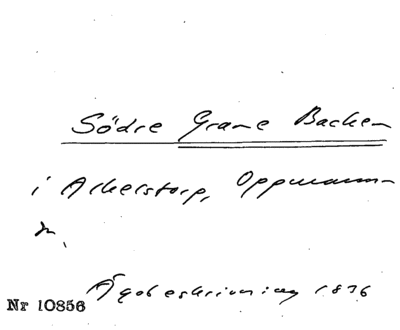 Södre Grane Backen
i Arkelstorp, Oppmanna
sn.
Ägobeskrivning 1836
Nr 10856